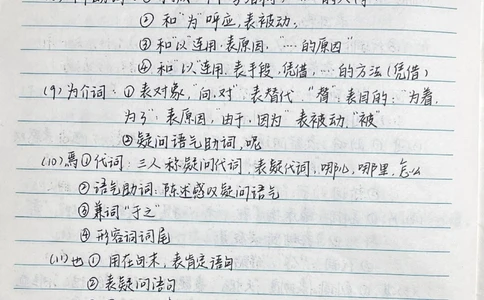 ② 和"为"呼应,表被动:
③ 和"以"连用.表原因,"…的原因"
④ 和"以"连用.表手段,凭借,…的方法(凭借)
(9)为介词:①表对象,"向,对"表替代"替,表目的:"为着,
为了",表原因,"由于,因为"表被动,"被"
②疑问语气助词,呢
(10)焉①代词:三人称疑问代词,表疑代词,哪儿,哪里,怎么
②语气助词:陈述感叹疑问语气
③兼词"于之"
④形容词词尾
(11)也① 用在句末,表肯定语句
② 表疑问语句